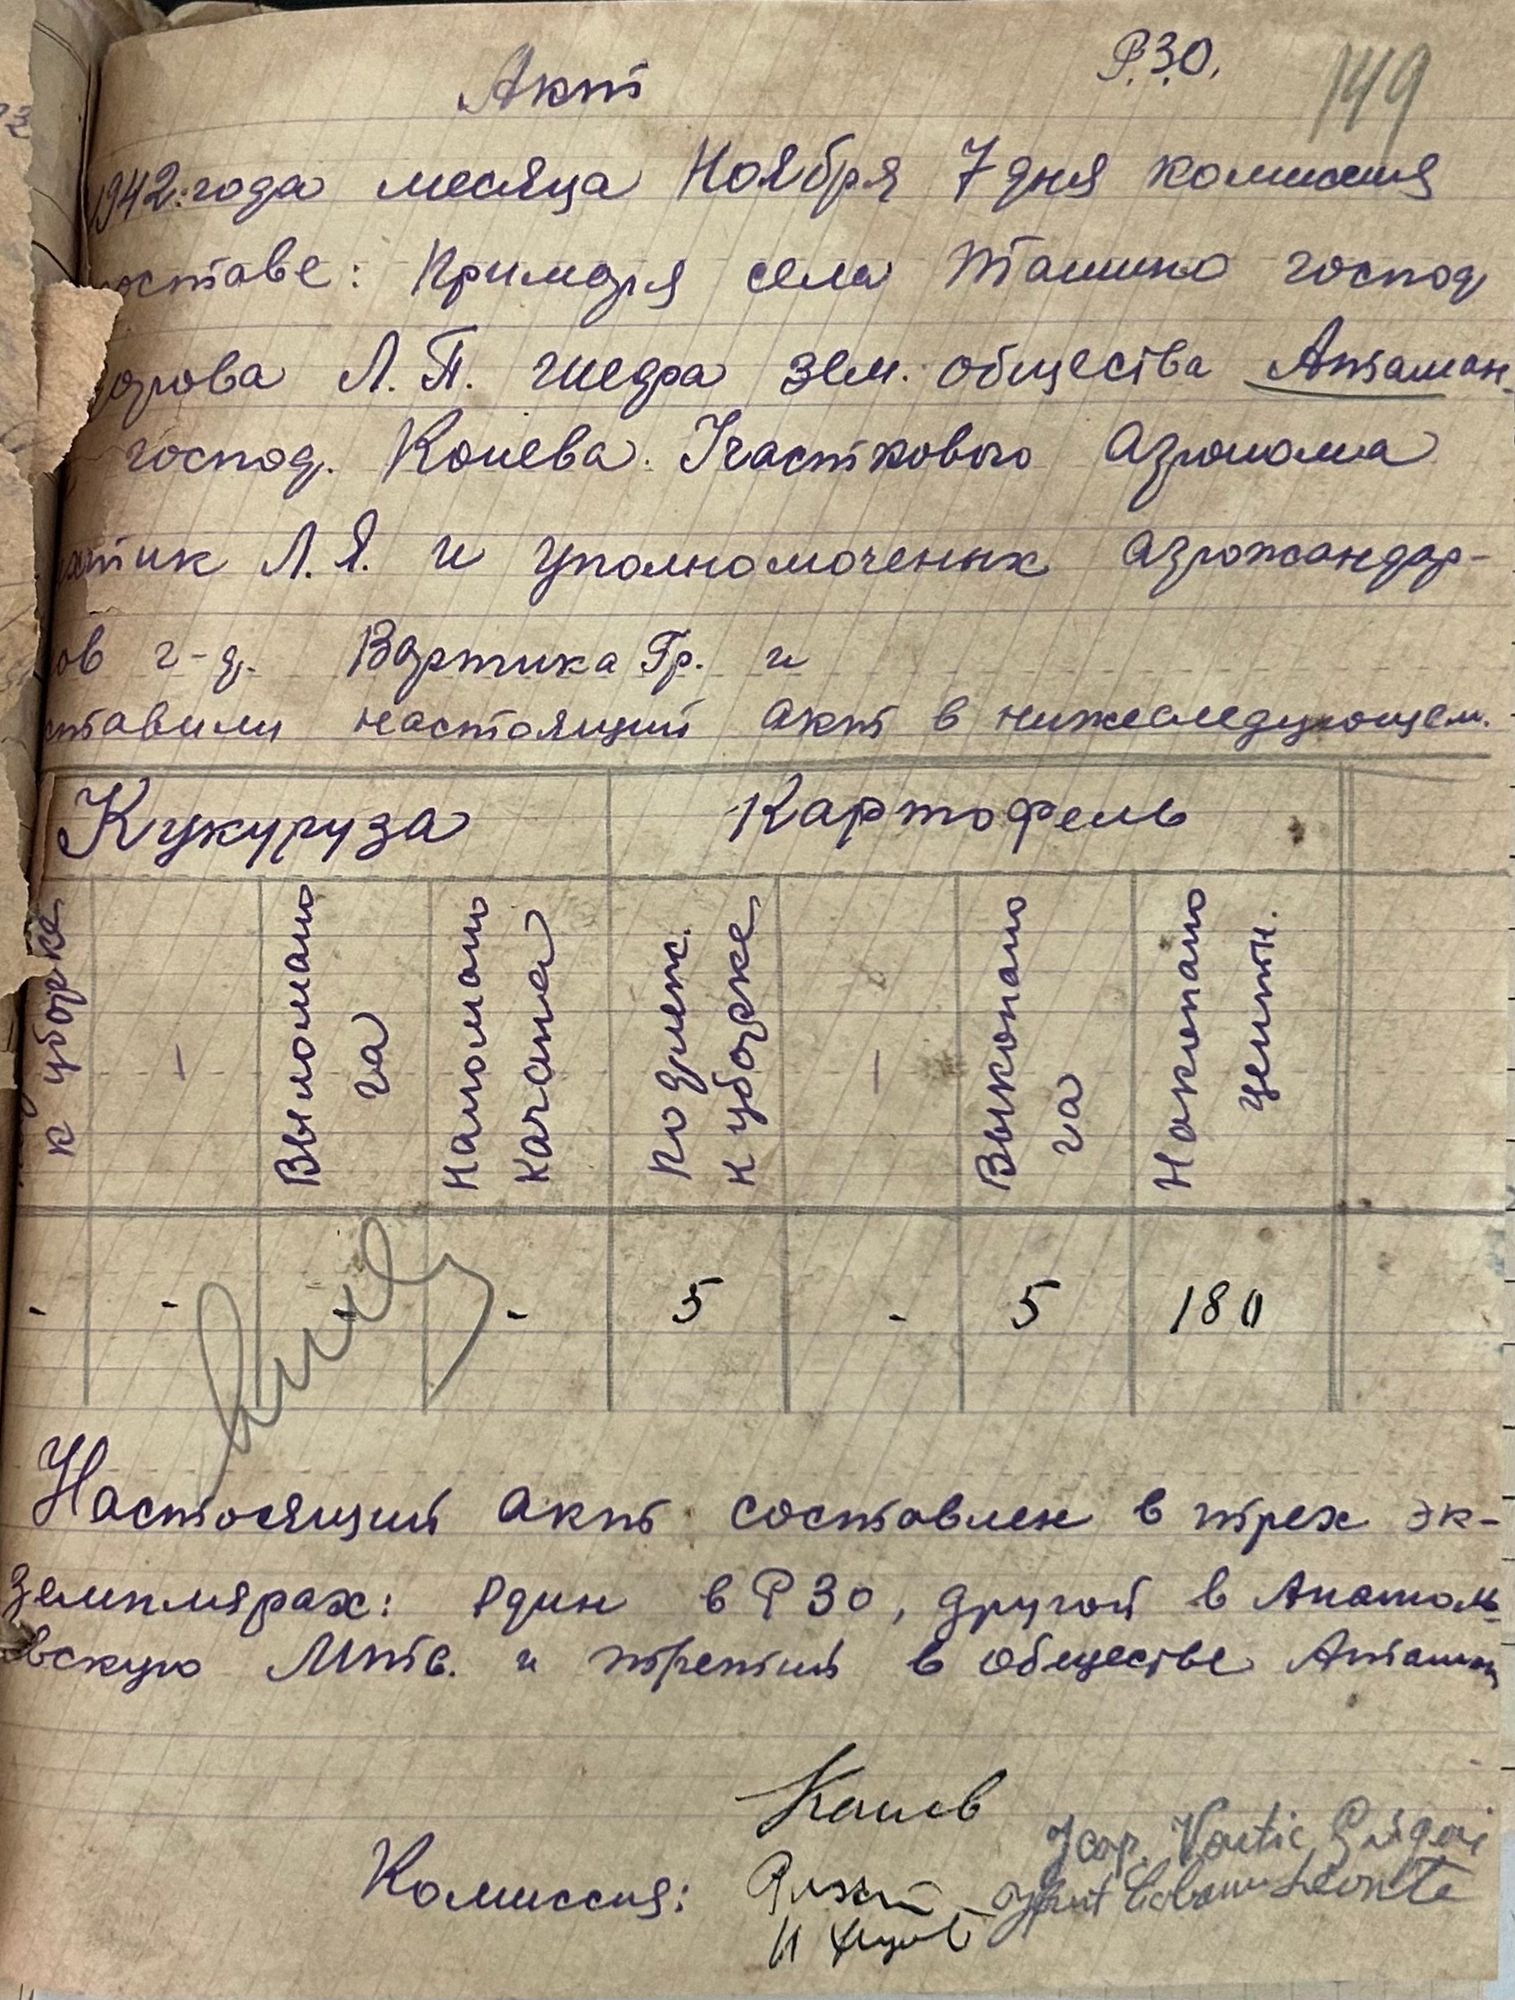 Р.З.О.
149
Акт
1942 года месяца Ноября 7 дня комиссия
оставе: Примаря села Ташино господ
арова Л. П. шефа зем. общества Атаман
господ. Конева. Участкового агронома
тик Л. Я. и уполномоченых агрожандар-
ов г-д. Вартика Гр. и
ставили настоящий акт в нижеследующем.
Кукуруза Картофель
к уборке
-
Выломано га
Наломано качана
Подлеж. к уборке
-
Выкопано га
Накопано центн.
- - - 5 - 5 180
Настоящий акт составлен в трех эк-
земплярах: один в РЗО, другой в Анатоль-
евскую Мтв. и третий в обществе Атаман
Конев
Комиссия:
Vartic Grigori
Leonte